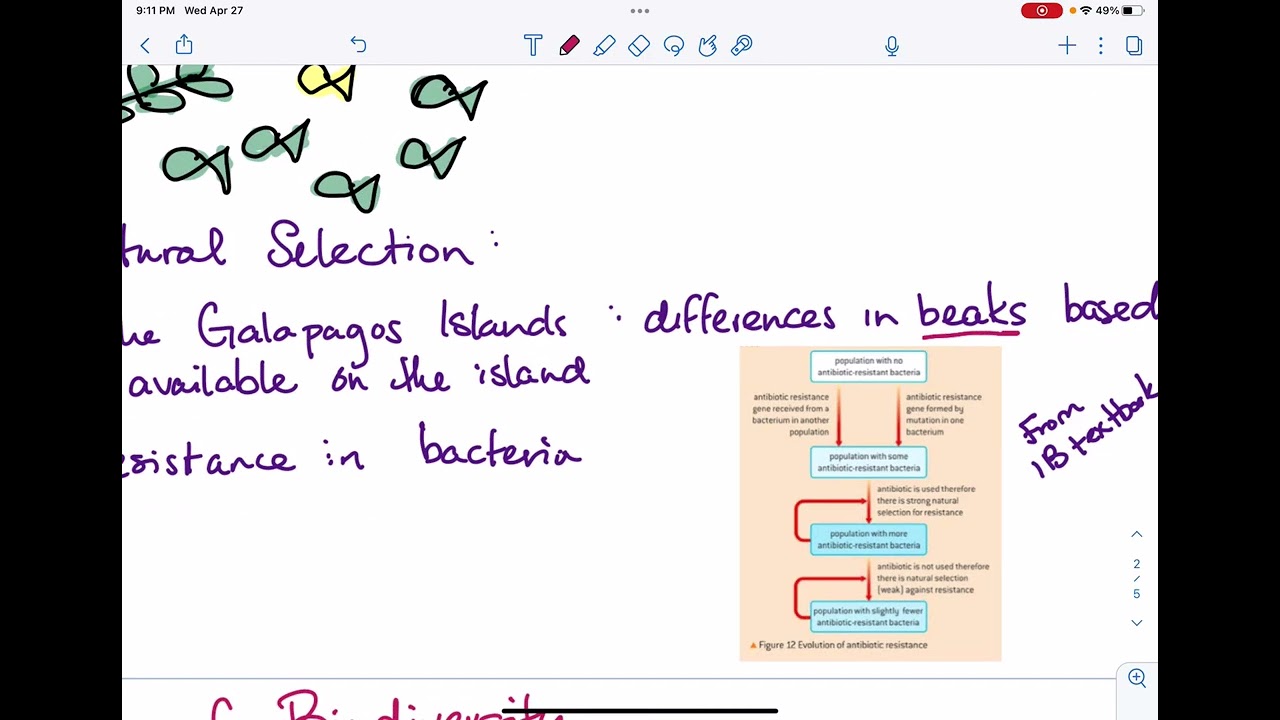 9:11 PM Wed Apr 27
49%
T
tural Selection:
he Galapagos Islands : differences in beaks based
available on the island
esistance in bacteria
population with no
antibiotic-resistant bacteria
antibiotic resistance
gene received from a
bacterium in another
population
antibiotic resistance
gene formed by
mutation in one
bacterium
population with some
antibiotic-resistant bacteria
antibiotic is used therefore
there is strong natural
selection for resistance
population with more
antibiotic-resistant bacteria
antibiotic is not used therefore
there is natural selection
(weak) against resistance
population with slightly fewer
antibiotic-resistant bacteria
Figure 12 Evolution of antibiotic resistance
From
IB textbook
2
/
5
Biodiversity